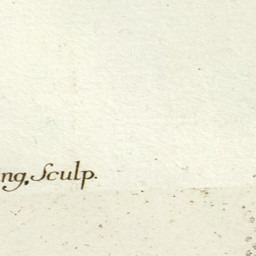 ng. Sculp.